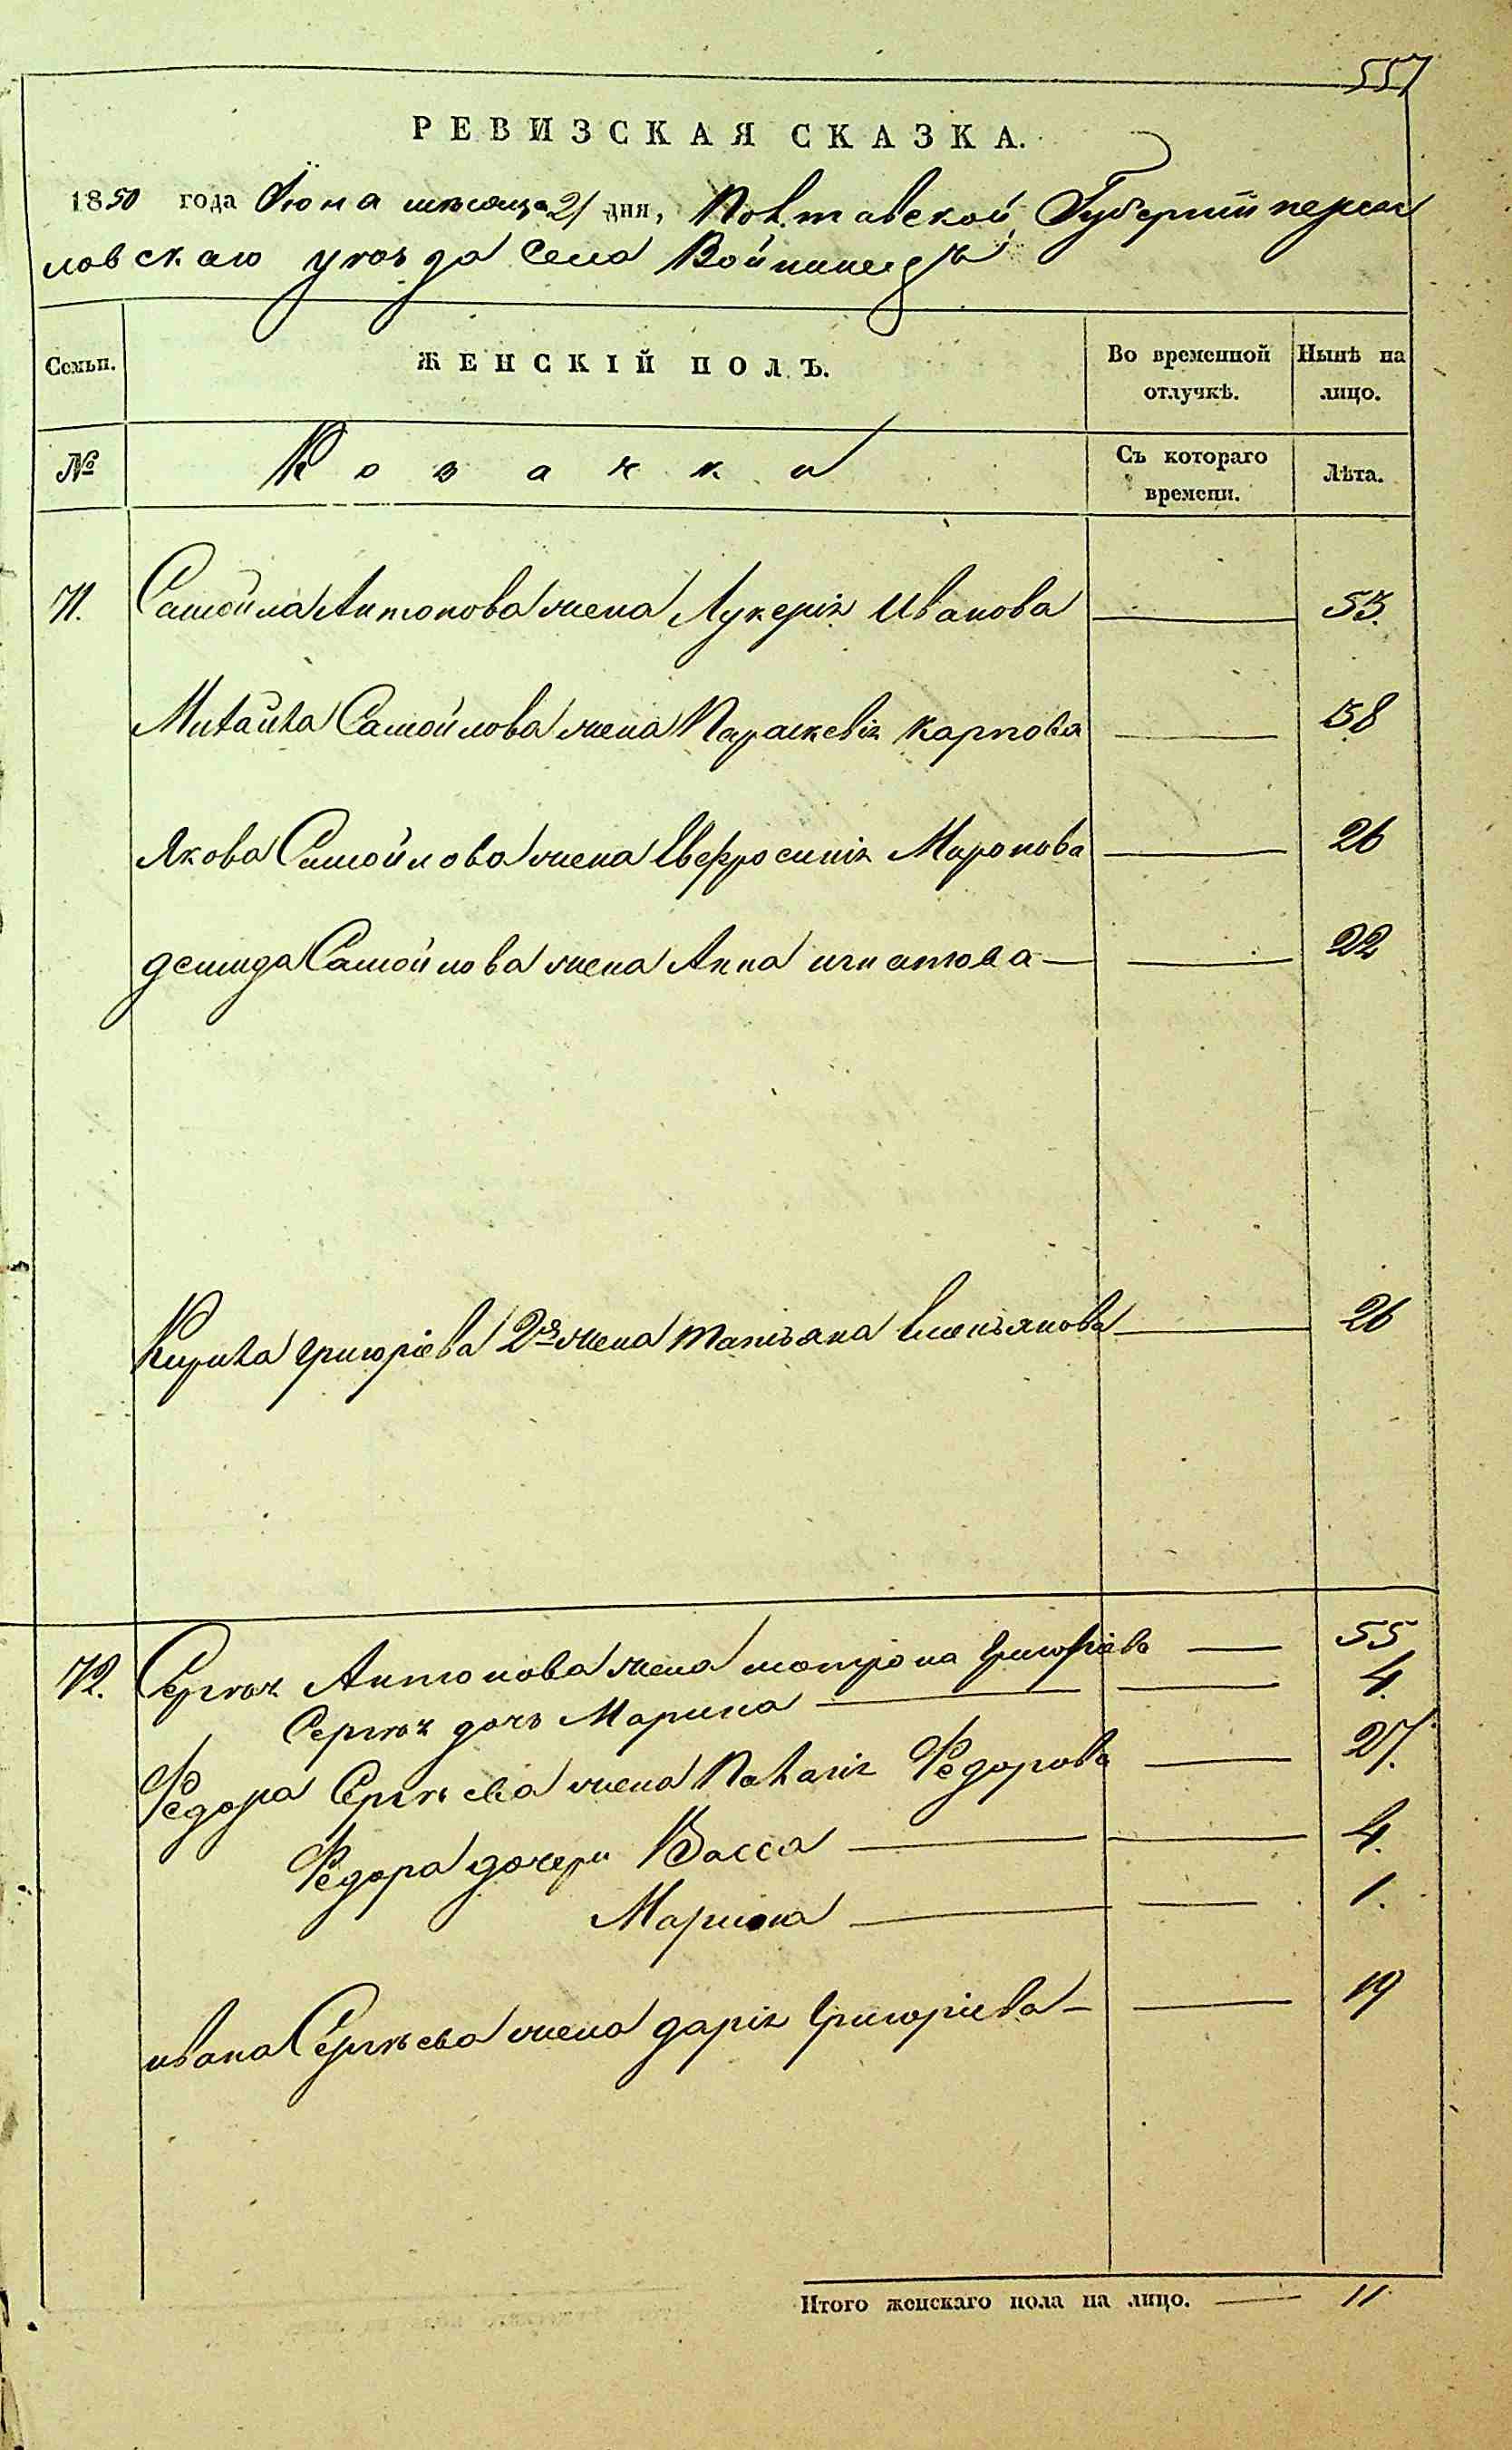 557
РЕВИЗСКАЯ СКАЗКА.
1850 года Июня месяца 21 дня, Полтавской Губернии переяс
ловскаго уѣзда Села Войтинецъ
Семьи. ЖЕНСКІЙ ПОЛЪ. Во временной отлучкѣ. Нынѣ на лицо.
№ Козачки Съ котораго времени. Лѣта.
71. Самойла Антонова жена Лукерія Иванова — 53.
Михайла Самойлова жена Параскевія Карпова — 38
Якова Самойлова жена Евфросинія Миронова — 26
демида Самойлова жена Анна игнатова — 22
Кирила григоріева 2я жена татьяна Емельянова — 26
72. Сергѣя Антонова жена матрона григоріева — 55
Сергѣя дочь Марина — 4.
Федора Сергѣева жена Наталія Федорова — 27.
Федора дочери Васса — 4.
Марина — 1.
ивана Сергѣева жена дарія григоріева — 19
Итого женскаго пола на лицо. — 11